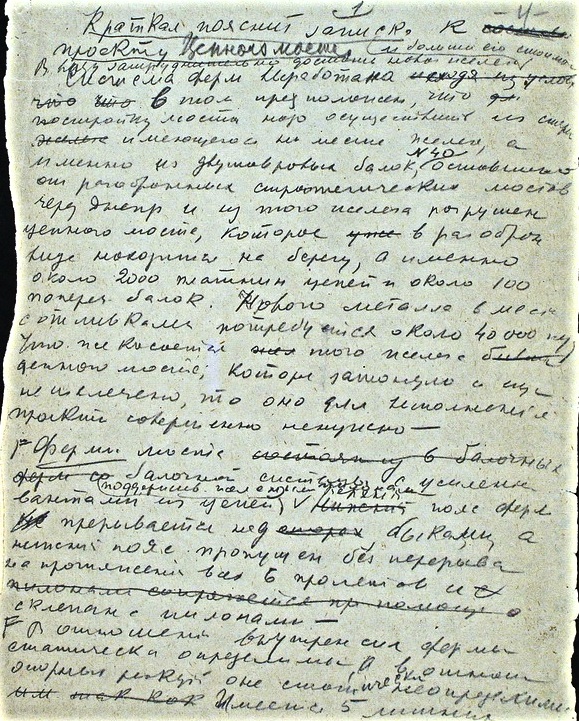 1
Краткая пояснит записка к
проекту Цепного моста
В виду затруднительно доставки новой и большой его стоимос
Система ферм выработана исходя из услов
что что в том предположен, что
постройку моста надо осуществить из стари
имеющегося на месте железа, а
именно из двутавровых балок, N 40 оставшихся
от разобранных стратегических мостов
через Днепр и из того железа разрушен
цепного моста, которое уже в разобран
виде находится на берегу, а именно
около 2000 пластин цепей и около 100
попереч балок. Нового металла вместе
с отливками потребуется около 40 000 пуд
Что же касается того железа бывш
цепного моста, которое затонуло и еще
не извлечено, то оно для исполнения
проекта совершенно ненужно —
Фермы моста состоят из 6 балочных
ферм со балочной системы с усилени
вантами из цепей, поддержив пояс ферм
прерывается над опорах быками, а
нижний пояс пропущен без перерыва
на протяжении всех 6 пролетов и
пилонами сопрягается при помощи
склепан с пилонами —
В отношении внутренних сил фермы
статически определимы, а в отнош
опорных реакций оне статически неопределимы
им так как Имеется 5 лишних